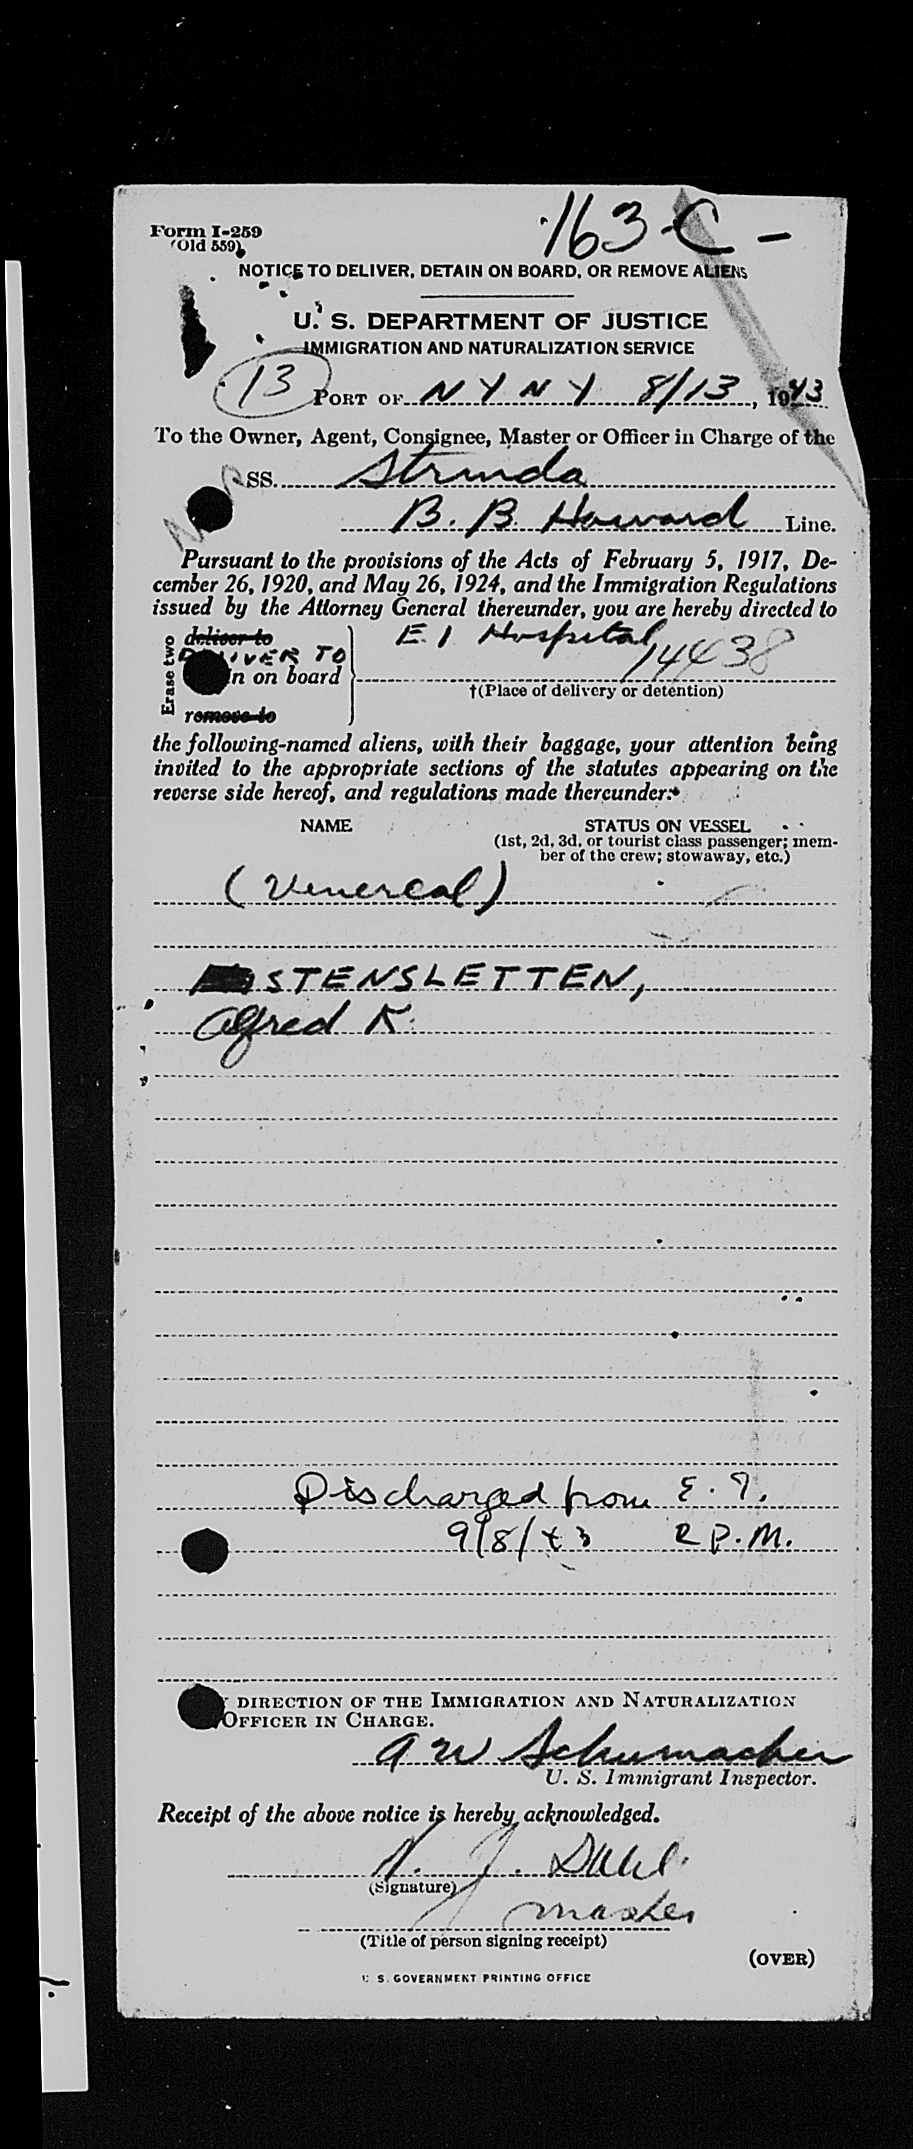 Form I-259
(Old 559)
163-C-
NOTICE TO DELIVER, DETAIN ON BOARD, OR REMOVE ALIENS
U. S. DEPARTMENT OF JUSTICE
IMMIGRATION AND NATURALIZATION SERVICE
13 PORT OF N Y N Y 8/13, 1943
To the Owner, Agent, Consignee, Master or Officer in Charge of the
SS. Strinda
B. B. Howard Line.
Pursuant to the provisions of the Acts of February 5, 1917, De-
cember 26, 1920, and May 26, 1924, and the Immigration Regulations
issued by the Attorney General thereunder, you are hereby directed to
Erase two
deliver to
DELIVER TO
n on board
remove to
E. I Hospital
14438
†(Place of delivery or detention)
the following-named aliens, with their baggage, your attention being
invited to the appropriate sections of the statutes appearing on the
reverse side hereof, and regulations made thereunder:*
NAME STATUS ON VESSEL
(1st, 2d, 3d, or tourist class passenger; mem-
ber of the crew; stowaway, etc.)
(Venereal)
STENSLETTEN,
Alfred K.
Discharged from E. I.
9/8/43 2 P.M.
DIRECTION OF THE IMMIGRATION AND NATURALIZATION
OFFICER IN CHARGE.
A W Schumacher
U. S. Immigrant Inspector.
Receipt of the above notice is hereby acknowledged.
N. J. Dahl
(Signature)
master
(Title of person signing receipt)
(OVER)
U. S. GOVERNMENT PRINTING OFFICE